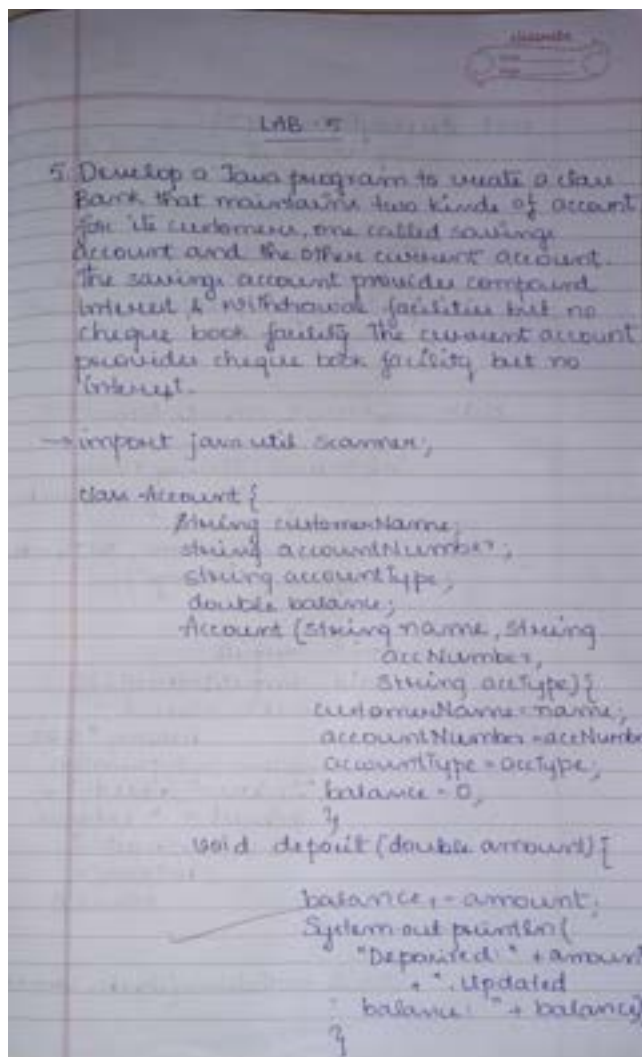 classmate
LAB - 5
5. Develop a Java program to create a class
Bank that maintains two kinds of account
for its customers, one called savings
account and the other current account.
The savings account provides compound
interest & withdrawal facilities but no
cheque book facility. The current account
provides cheque book facility but no
interest.
→ import java.util.Scanner;
class Account {
String customerName;
String accountNumber;
String accountType;
double balance;
Account (String name, String
accNumber,
String accType) {
customerName = name;
accountNumber = accNumbe
accountType = accType;
balance = 0;
}
void deposit (double amount) {
balance += amount;
System.out.println(
"Deposited: " + amount
+ ". Updated
balance: " + balance)
}